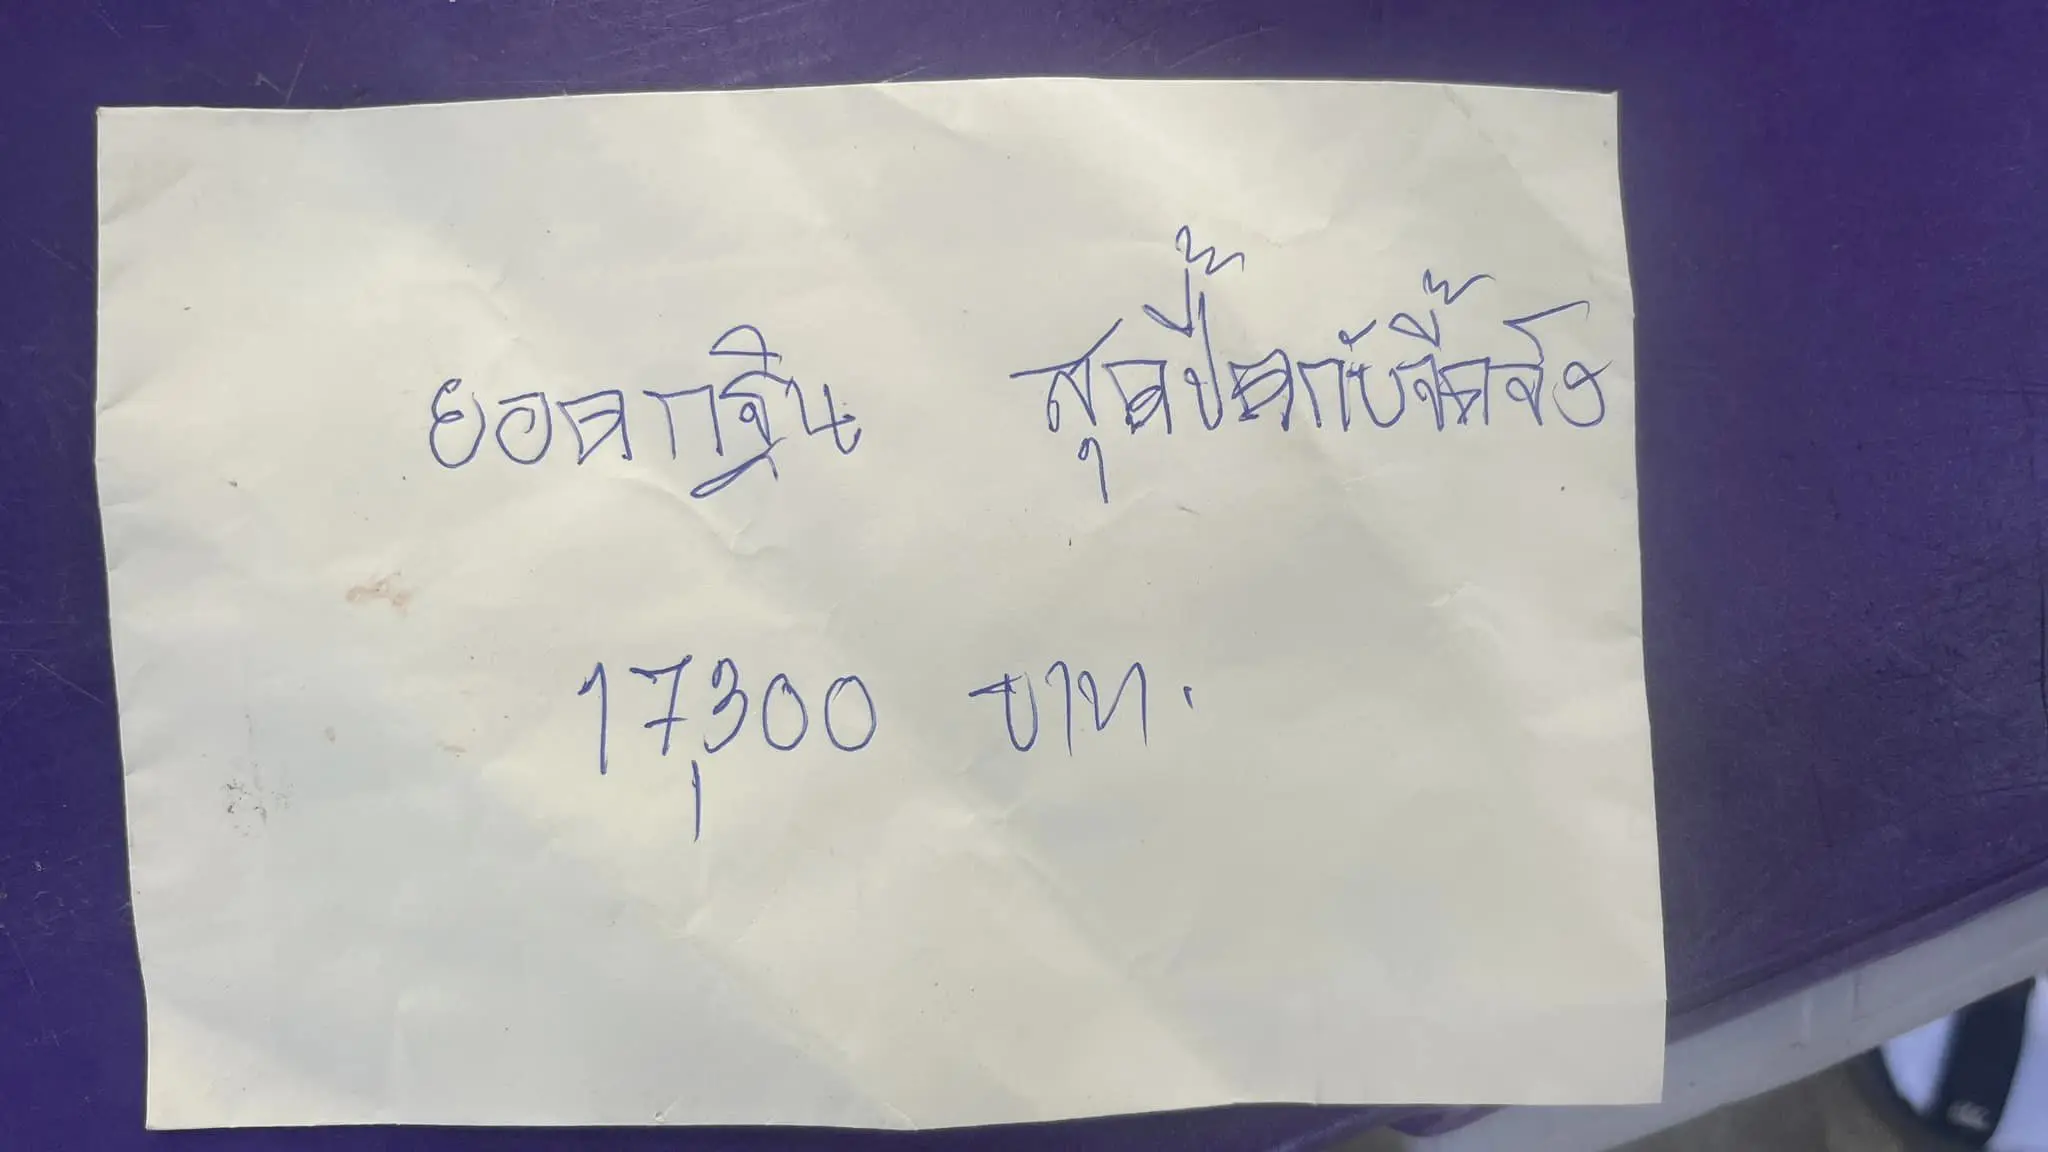 ยอดกฐิน สุดปื๊ดกับจี๊ดจัง
17,300 บาท.